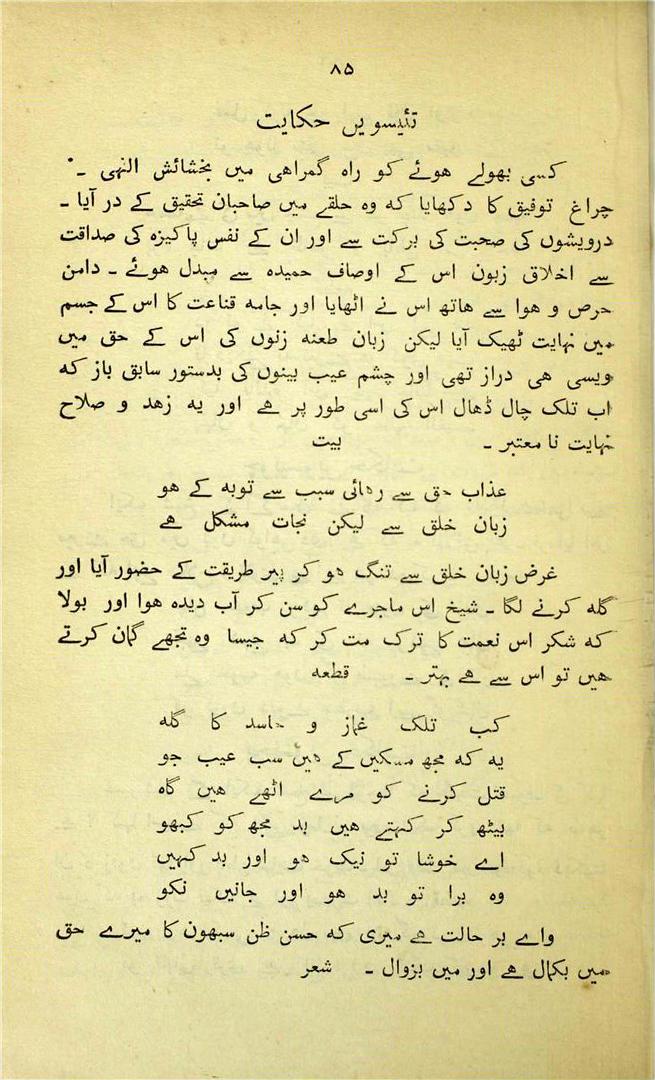 ۸۵
تئیسویں حکایت
کسی بھولے ہوئے کو راہ گمراہی میں بخشائش الٰہی نے
چراغ توفیق کا دکھایا کہ وہ حلقے میں صاحبان تحقیق کے در آیا ۔
درویشوں کی صحبت کی برکت سے اور ان کے نفس پاکیزہ کی صداقت
سے اخلاق زبون اس کے اوصاف حمیدہ سے مبدل ہوئے ۔ دامن
حرص و ہوا سے ہاتھ اس نے اٹھایا اور جامہ قناعت کا اس کے جسم
میں نہایت ٹھیک آیا لیکن زبان طعنہ زنوں کی اس کے حق میں
ویسی ہی دراز تھی اور چشم عیب بینوں کی بدستور سابق باز کہ
اب تلک چال ڈھال اس کی اسی طور پر ہے اور یہ زہد و صلاح
نہایت نا معتبر ۔ بیت
عذاب حق سے رہائی سبب سے توبہ کے ہو
زبان خلق سے لیکن نجات مشکل ہے
غرض زبان خلق سے تنگ ہو کر پیر طریقت کے حضور آیا اور
گلہ کرنے لگا ۔ شیخ اس ماجرے کو سن کر آب دیدہ ہوا اور بولا
کہ شکر اس نعمت کا ترک مت کر کہ جیسا وہ تجھے گمان کرتے
ہیں تو اس سے ہے بہتر ۔ قطعہ
کب تلک غماز و حاسد کا گلہ
یہ کہ مجھ مسکیں کے ہیں سب عیب جو
قتل کرنے کو مرے اٹھے ہیں گاہ
بیٹھ کر کہتے ہیں بد مجھ کو کبھو
اے خوشا تو نیک ہو اور بد کہیں
وہ برا تو بد ہو اور جانیں نکو
واے بر حالت ہے میری کہ حسن ظن سبھوں کا میرے حق
میں بکمال ہے اور میں بزوال ۔ شعر